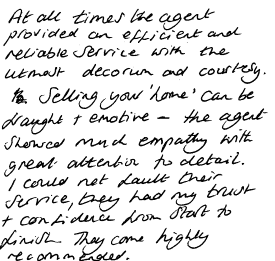 At all times the agent
provided an efficient and
reliable service with the
utmost decorum and courtesy.
Selling your 'home' can be
draught + emotive - the agent
showed much empathy with
great attention to detail.
I could not fault their
service, they had my trust
+ confidence from start to
finish. They come highly
recommended.